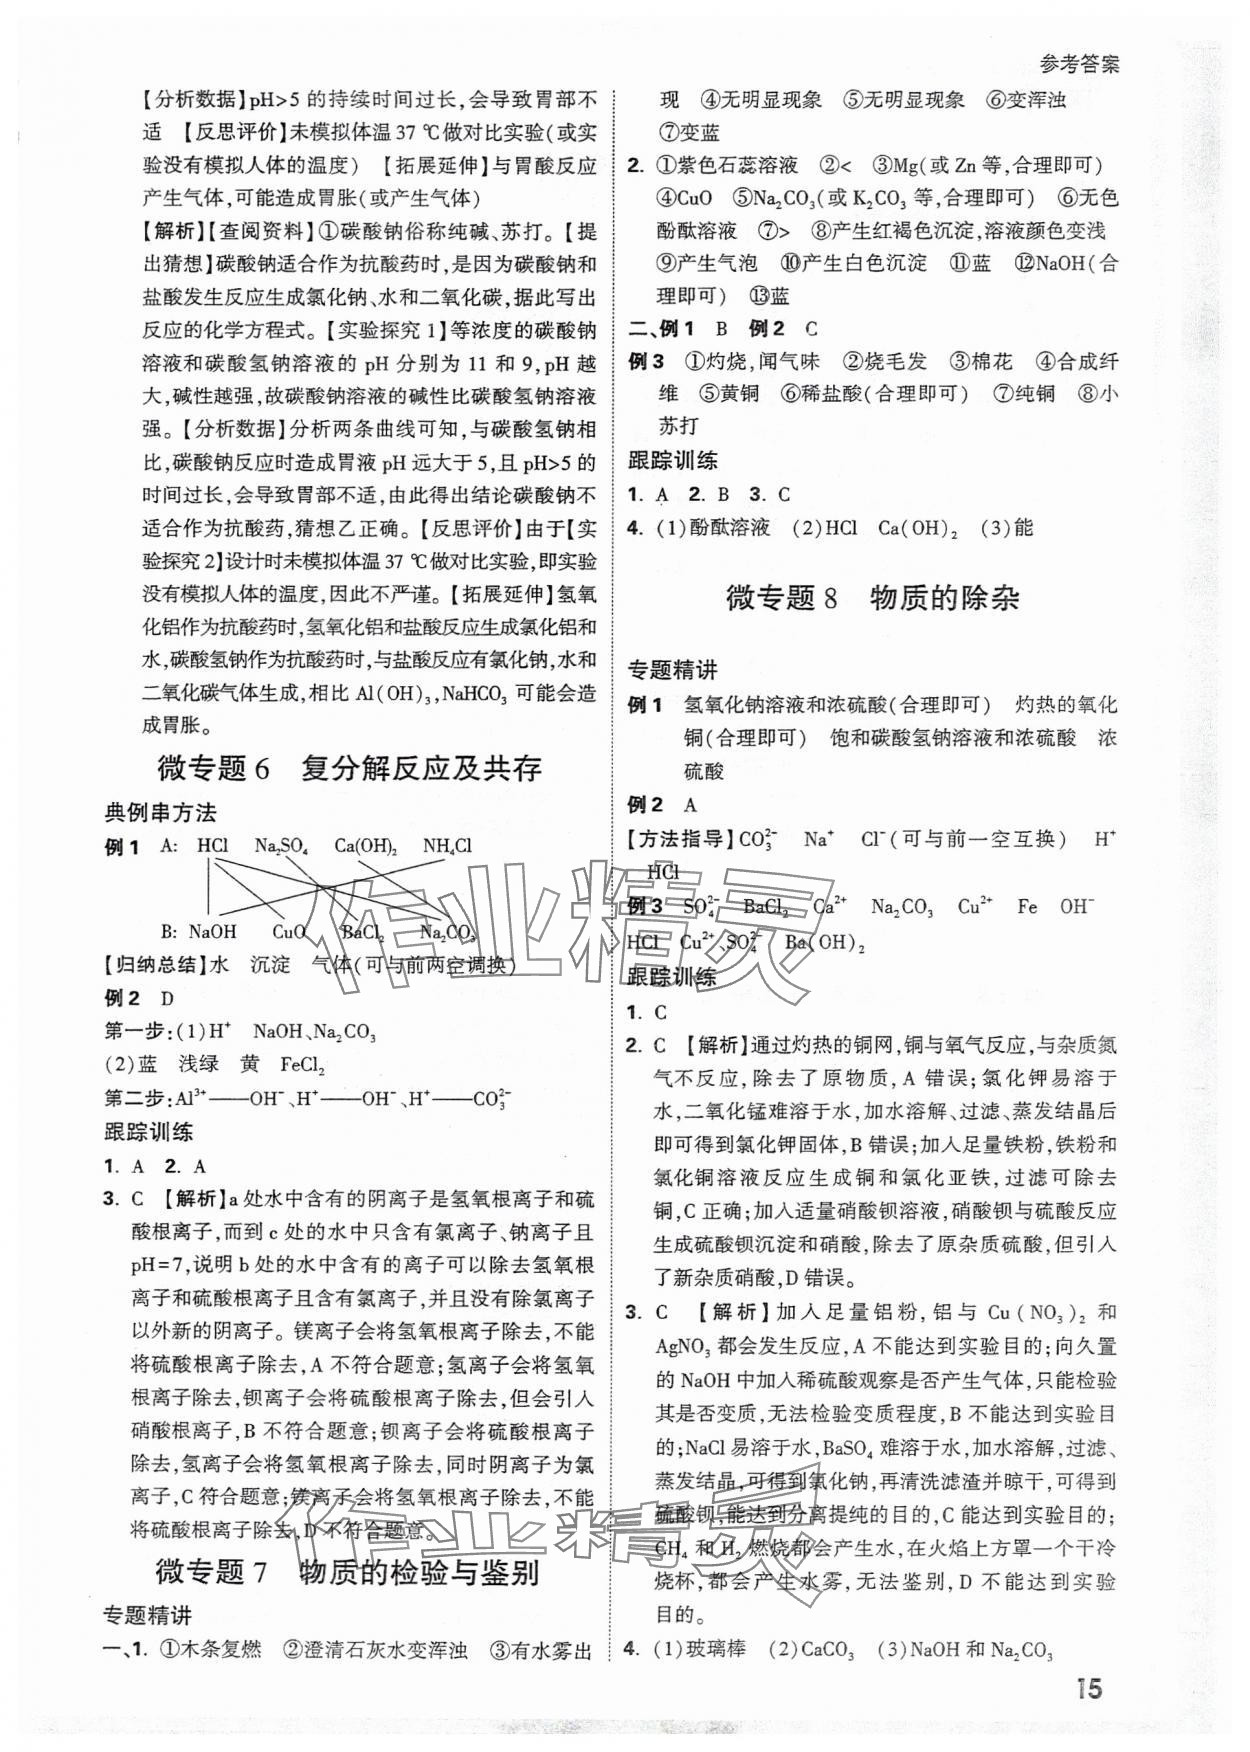 参考答案
【分析数据】pH>5 的持续时间过长,会导致胃部不
适　【反思评价】未模拟体温 37 ℃做对比实验(或实
验没有模拟人体的温度)　【拓展延伸】与胃酸反应
产生气体,可能造成胃胀(或产生气体)
【解析】【查阅资料】①碳酸钠俗称纯碱、苏打。【提
出猜想】碳酸钠适合作为抗酸药时,是因为碳酸钠和
盐酸发生反应生成氯化钠、水和二氧化碳,据此写出
反应的化学方程式。【实验探究 1】等浓度的碳酸钠
溶液和碳酸氢钠溶液的 pH 分别为 11 和 9,pH 越
大,碱性越强,故碳酸钠溶液的碱性比碳酸氢钠溶液
强。【分析数据】分析两条曲线可知,与碳酸氢钠相
比,碳酸钠反应时造成胃液 pH 远大于 5,且 pH>5 的
时间过长,会导致胃部不适,由此得出结论碳酸钠不
适合作为抗酸药,猜想乙正确。【反思评价】由于【实
验探究 2】设计时未模拟体温 37 ℃做对比实验,即实验
没有模拟人体的温度,因此不严谨。【拓展延伸】氢氧
化铝作为抗酸药时,氢氧化铝和盐酸反应生成氯化铝和
水,碳酸氢钠作为抗酸药时,与盐酸反应有氯化钠,水和
二氧化碳气体生成,相比 Al(OH)₃,NaHCO₃ 可能会造
成胃胀。
微专题 6　复分解反应及共存
典例串方法
例 1　A:　HCl　Na₂SO₄　Ca(OH)₂　NH₄Cl
B: NaOH　CuO　BaCl₂　Na₂CO₃
【归纳总结】水　沉淀　气体(可与前两空调换)
例 2　D
第一步:(1)H⁺　NaOH、Na₂CO₃
(2)蓝　浅绿　黄　FeCl₂
第二步:Al³⁺——OH⁻、H⁺——OH⁻、H⁺——CO₃²⁻
跟踪训练
1. A　2. A
3. C　【解析】a 处水中含有的阴离子是氢氧根离子和硫
酸根离子,而到 c 处的水中只含有氯离子、钠离子且
pH=7,说明 b 处的水中含有的离子可以除去氢氧根
离子和硫酸根离子且含有氯离子,并且没有除氯离子
以外新的阴离子。镁离子会将氢氧根离子除去,不能
将硫酸根离子除去,A 不符合题意;氢离子会将氢氧
根离子除去,钡离子会将硫酸根离子除去,但会引入
硝酸根离子,B 不符合题意;钡离子会将硫酸根离子
除去,氢离子会将氢氧根离子除去,同时阴离子为氯
离子,C 符合题意;镁离子会将氢氧根离子除去,不能
将硫酸根离子除去,D 不符合题意。
微专题 7　物质的检验与鉴别
专题精讲
一、1. ①木条复燃　②澄清石灰水变浑浊　③有水雾出
现　④无明显现象　⑤无明显现象　⑥变浑浊
⑦变蓝
2. ①紫色石蕊溶液　②<　③Mg(或 Zn 等,合理即可)
④CuO　⑤Na₂CO₃(或 K₂CO₃ 等,合理即可)　⑥无色
酚酞溶液　⑦>　⑧产生红褐色沉淀,溶液颜色变浅
⑨产生气泡　⑩产生白色沉淀　⑪蓝　⑫NaOH(合
理即可)　⑬蓝
二、例 1　B　例 2　C
例 3　①灼烧,闻气味　②烧毛发　③棉花　④合成纤
维　⑤黄铜　⑥稀盐酸(合理即可)　⑦纯铜　⑧小
苏打
跟踪训练
1. A　2. B　3. C
4. (1)酚酞溶液　(2)HCl　Ca(OH)₂　(3)能
微专题 8　物质的除杂
专题精讲
例 1　氢氧化钠溶液和浓硫酸(合理即可)　灼热的氧化
铜(合理即可)　饱和碳酸氢钠溶液和浓硫酸　浓
硫酸
例 2　A
【方法指导】CO₃²⁻　Na⁺　Cl⁻(可与前一空互换)　H⁺
HCl
例 3　SO₄²⁻　BaCl₂　Ca²⁺　Na₂CO₃　Cu²⁺　Fe　OH⁻
HCl　Cu²⁺、SO₄²⁻　Ba(OH)₂
跟踪训练
1. C
2. C　【解析】通过灼热的铜网,铜与氧气反应,与杂质氮
气不反应,除去了原物质,A 错误;氯化钾易溶于
水,二氧化锰难溶于水,加水溶解、过滤、蒸发结晶后
即可得到氯化钾固体,B 错误;加入足量铁粉,铁粉和
氯化铜溶液反应生成铜和氯化亚铁,过滤可除去
铜,C 正确;加入适量硝酸钡溶液,硝酸钡与硫酸反应
生成硫酸钡沉淀和硝酸,除去了原杂质硫酸,但引入
了新杂质硝酸,D 错误。
3. C　【解析】加入足量铝粉,铝与 Cu(NO₃)₂ 和
AgNO₃ 都会发生反应,A 不能达到实验目的;向久置
的 NaOH 中加入稀硫酸观察是否产生气体,只能检验
其是否变质,无法检验变质程度,B 不能达到实验目
的;NaCl 易溶于水,BaSO₄ 难溶于水,加水溶解、过滤、
蒸发结晶,可得到氯化钠,再清洗滤渣并晾干,可得到
硫酸钡,能达到分离提纯的目的,C 能达到实验目的;
CH₄ 和 H₂ 燃烧都会产生水,在火焰上方罩一个干冷
烧杯,都会产生水雾,无法鉴别,D 不能达到实验
目的。
4. (1)玻璃棒　(2)CaCO₃　(3)NaOH 和 Na₂CO₃
15
作业精灵
作业精灵